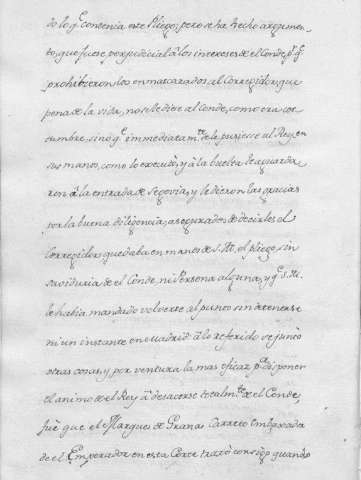 do lo q.e contenia este Pliego; pero se ha hecho argumen-
to, que fuese perjudicial à los intereses de el Conde, p.r q.e
prohibieron los enmascarados al Corregidor, que
pena de la vida, no se le diese al Conde, como era cos-
tumbre, sino q.e immediatam.te le pusiesse al Rey, en
sus manos, como lo executò, y à la buelta le aguarda-
ron à la entrada de Segovia, y le dieron las gracias
por la buena diligencia, asegurados de decirles el
Corregidor, quedaba en manos de S. M. el pliego, sin
saviduria de el Conde, ni Persona alguna, y q.e S. M.
le habia mandado volverse al punto sin detenerse
ni un instante en Madrid. à lo referido se juntò
otras cosas, y por ventura la mas eficaz p.a disponer
el animo de el Rey à desacerse totalm.te de el Conde,
fuè que el Marques de Grana, Carreto Embaxador
de el Emperador en esta Corte tratò consigo quando